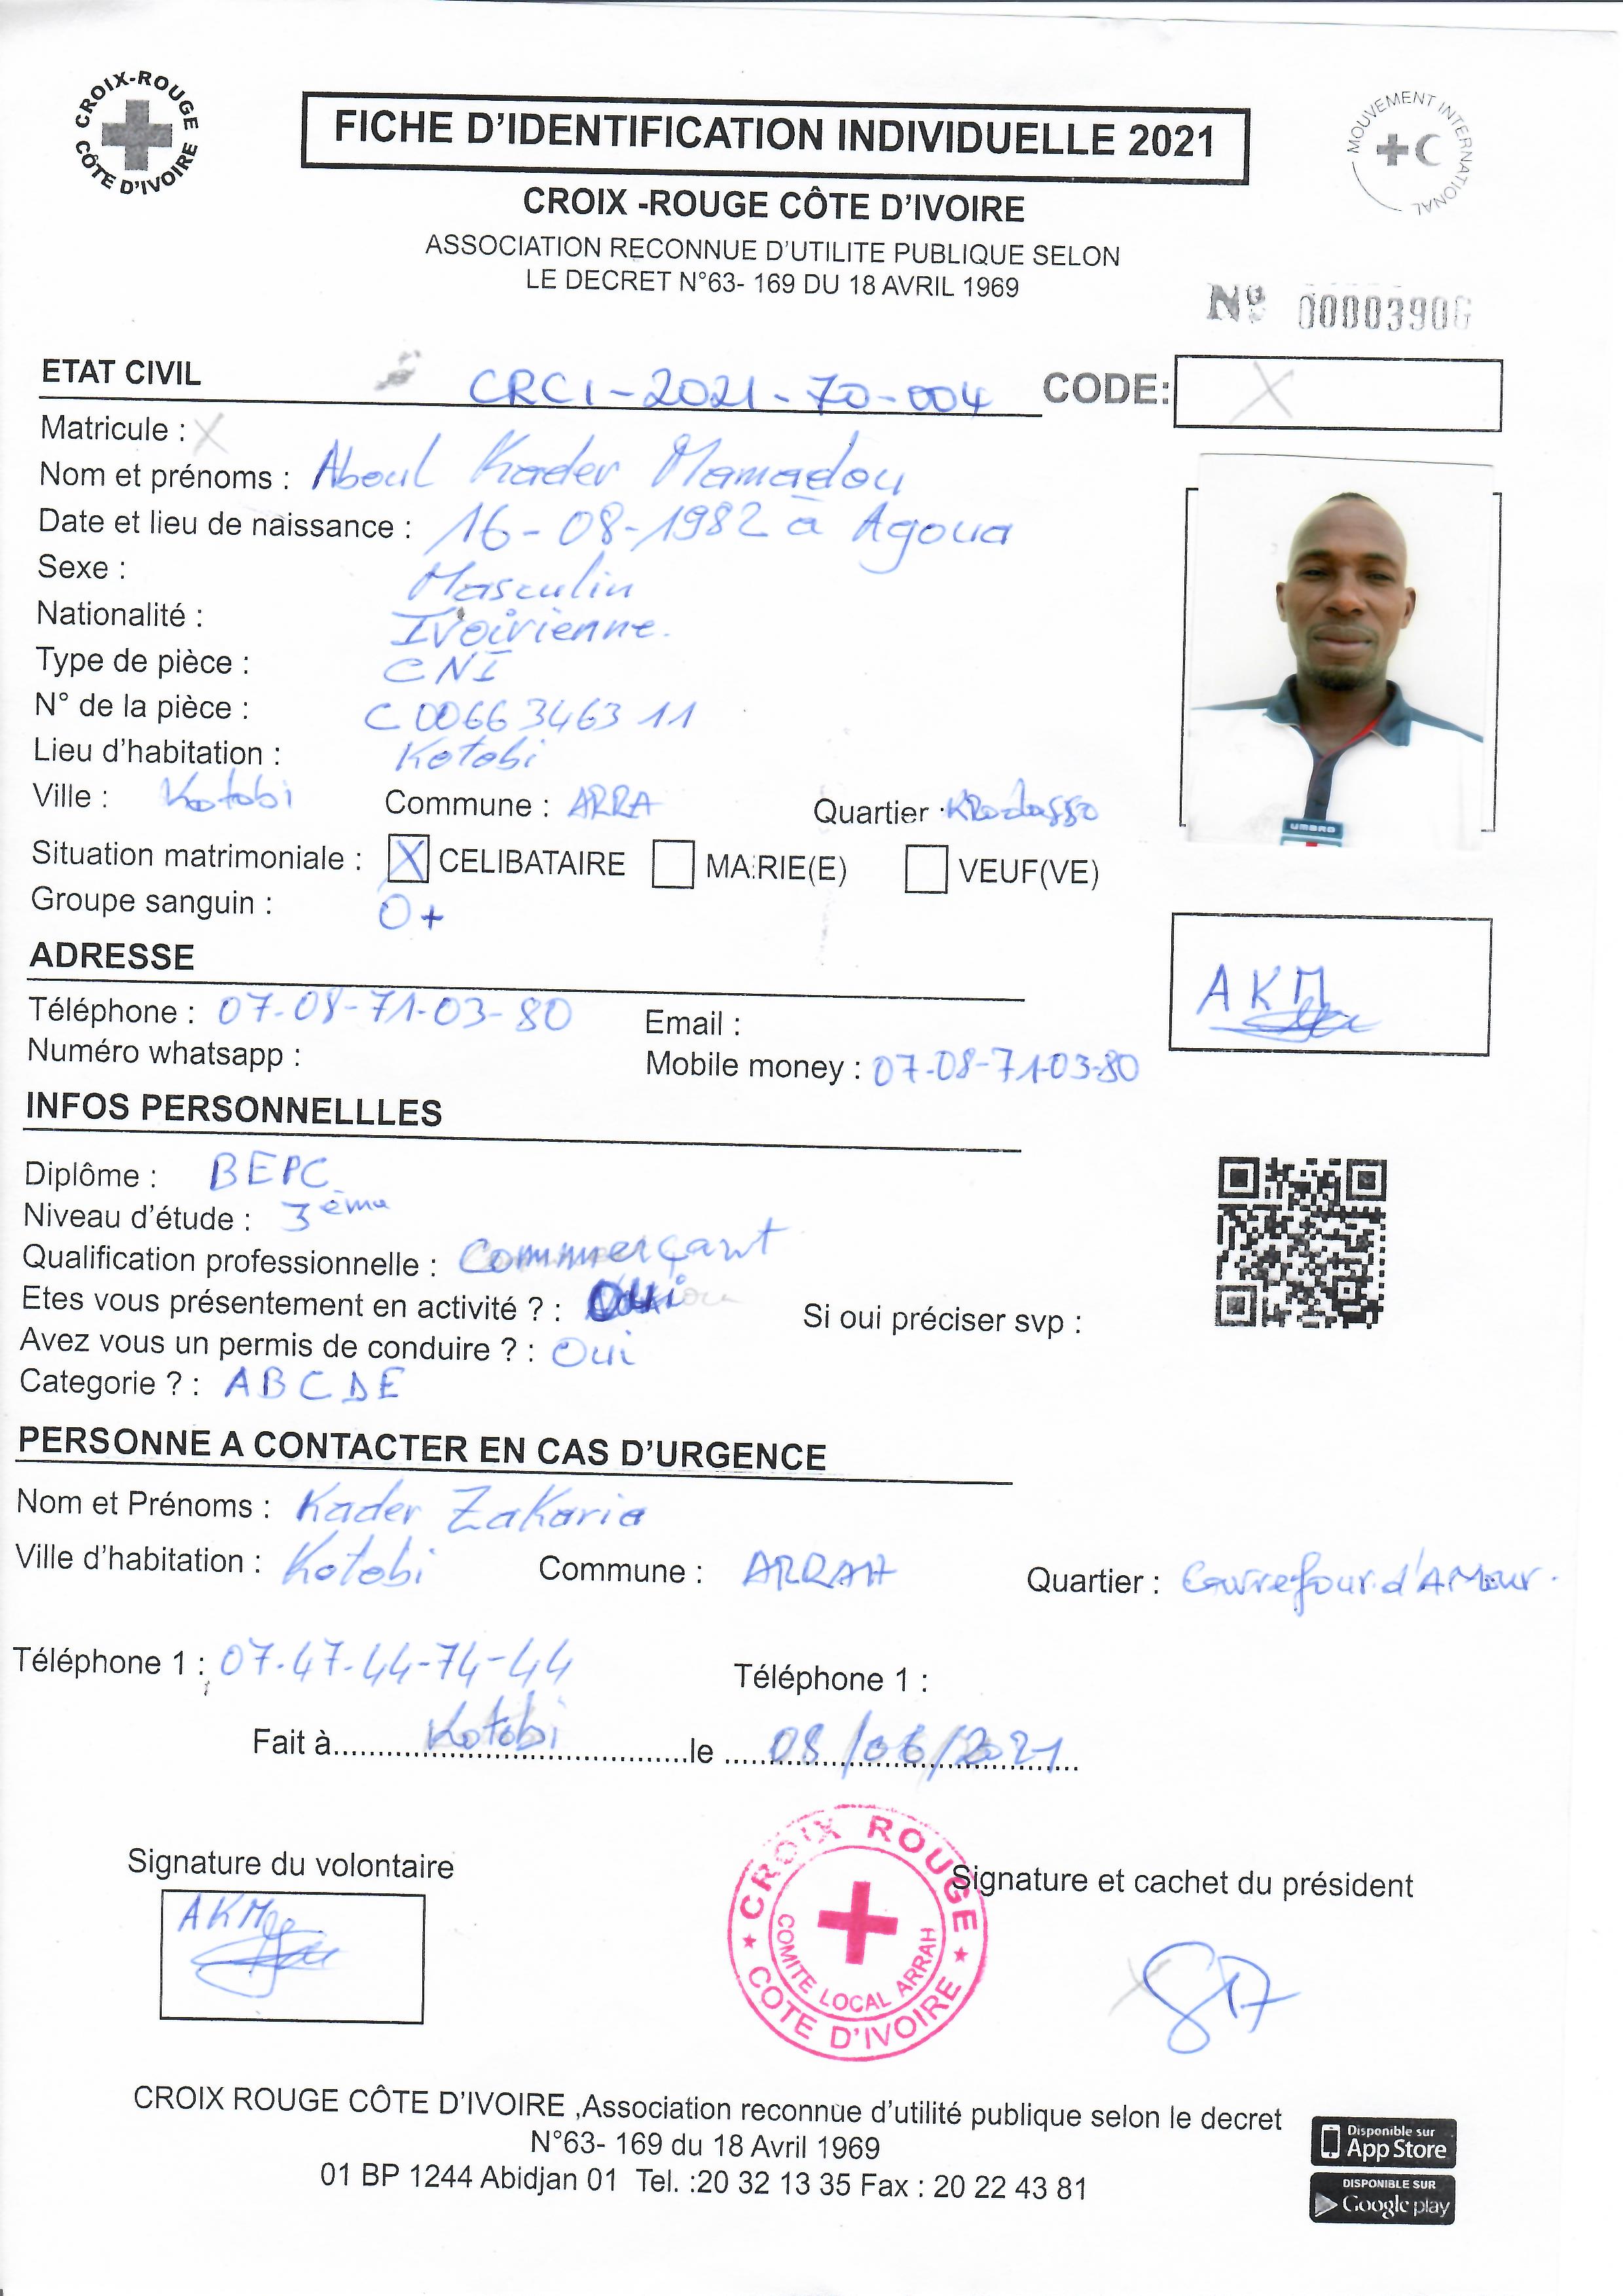 CROIX-ROUGE CÔTE D'IVOIRE
FICHE D'IDENTIFICATION INDIVIDUELLE 2021
MOUVEMENT INTERNATIONAL
CROIX -ROUGE CÔTE D'IVOIRE
ASSOCIATION RECONNUE D'UTILITE PUBLIQUE SELON
LE DECRET N°63- 169 DU 18 AVRIL 1969
Nº 00003906
ETAT CIVIL CRCI-2021-70-004 CODE: X
Matricule : X
Nom et prénoms : Aboul Kader Mamadou
Date et lieu de naissance : 16-08-1982 à Agoua
Sexe : Masculin
Nationalité : Ivoirienne.
Type de pièce : CNI
N° de la pièce : C 0066 3463 11
Lieu d'habitation : Kotobi
Ville : Kotobi Commune : ARRA Quartier :
Situation matrimoniale : X CELIBATAIRE MARIE(E) VEUF(VE)
Groupe sanguin : O+
UMBRO
ADRESSE
AKM
Téléphone : 07-08-71-03-80 Email :
Numéro whatsapp : Mobile money : 07-08-71-03-80
INFOS PERSONNELLLES
Diplôme : BEPC
Niveau d'étude : 3ème
Qualification professionnelle : Commerçant
Etes vous présentement en activité ? : Oui Si oui préciser svp :
Avez vous un permis de conduire ? : Oui
Categorie ? : ABCDE
PERSONNE A CONTACTER EN CAS D'URGENCE
Nom et Prénoms : Kader Zakaria
Ville d'habitation : Kotobi Commune : ARRAH Quartier : Carrefour d'AMour.
Téléphone 1 : 07-47-44-74-44 Téléphone 1 :
Fait à Kotobi le 08/06/2021
Signature du volontaire
Signature et cachet du président
AKM
CROIX ROUGE
COMITE LOCAL ARRAH
COTE D'IVOIRE
CROIX ROUGE CÔTE D'IVOIRE ,Association reconnue d'utilité publique selon le decret
N°63- 169 du 18 Avril 1969
01 BP 1244 Abidjan 01 Tel. :20 32 13 35 Fax : 20 22 43 81
Disponible sur
App Store
DISPONIBLE SUR
Google play